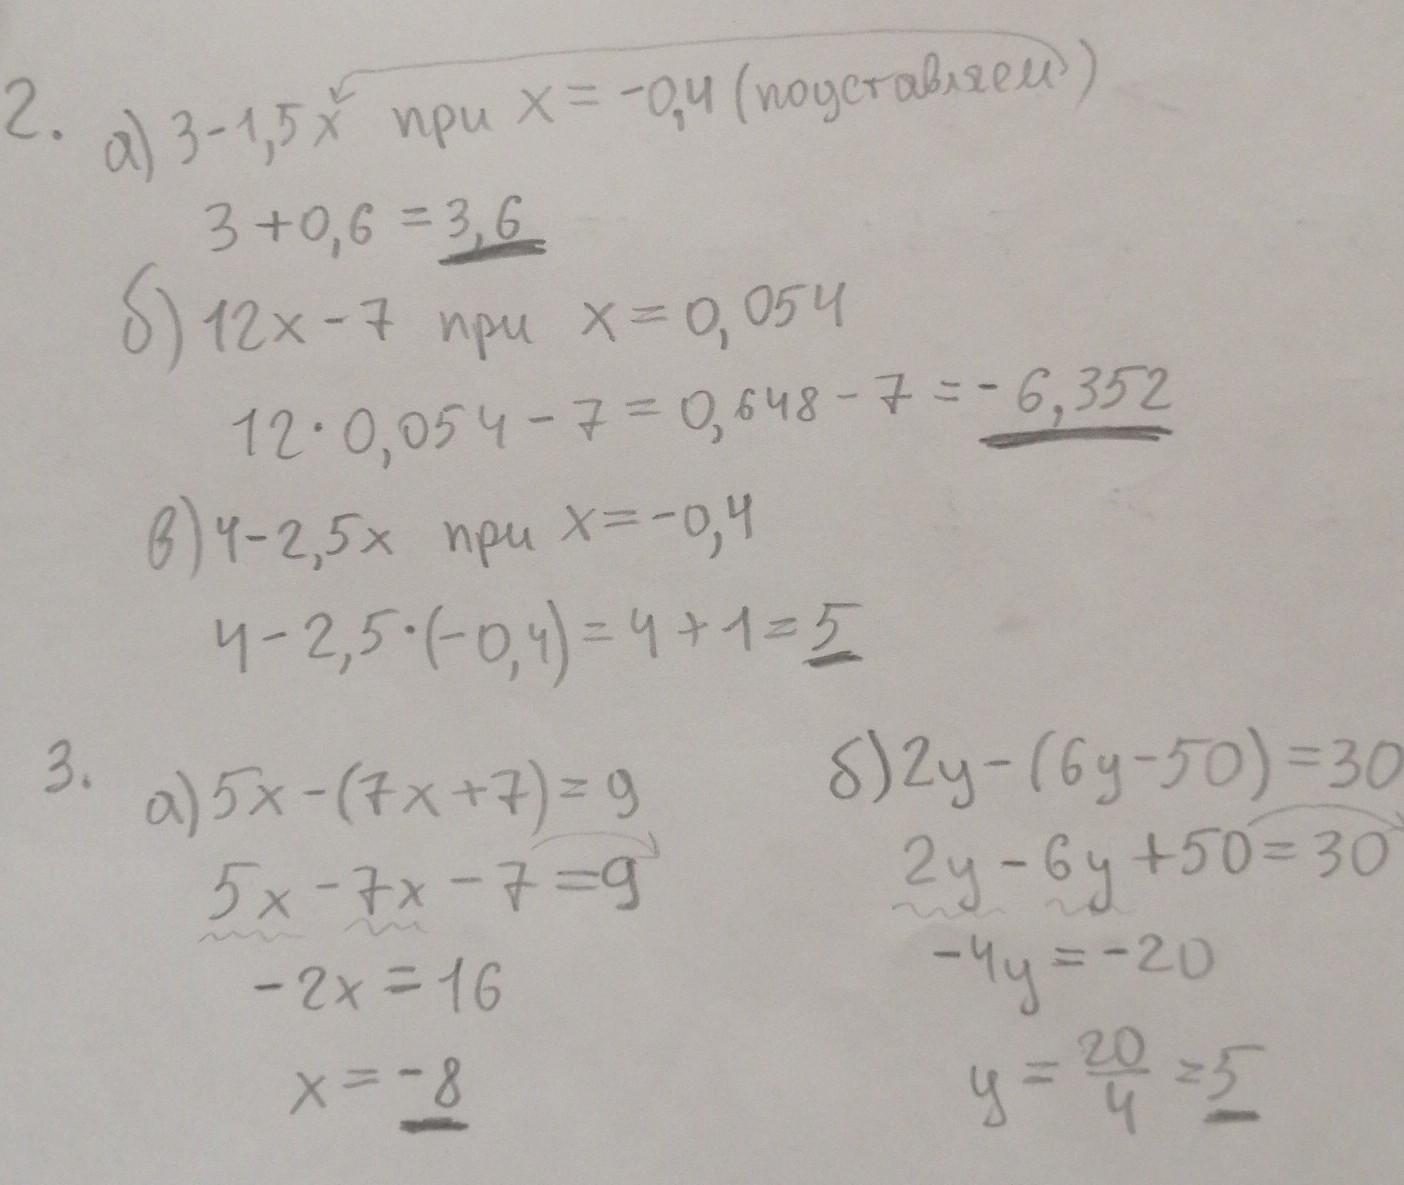 2. а) 3-1,5x при x=-0,4 (подставляем)
3+0,6=3,6
б) 12x-7 при x=0,054
12·0,054-7=0,648-7=-6,352
в) 4-2,5x при x=-0,4
4-2,5·(-0,4)=4+1=5
3. а) 5x-(7x+7)=9
5x-7x-7=9
-2x=16
x=-8
б) 2y-(6y-50)=30
2y-6y+50=30
-4y=-20
y=20/4=5